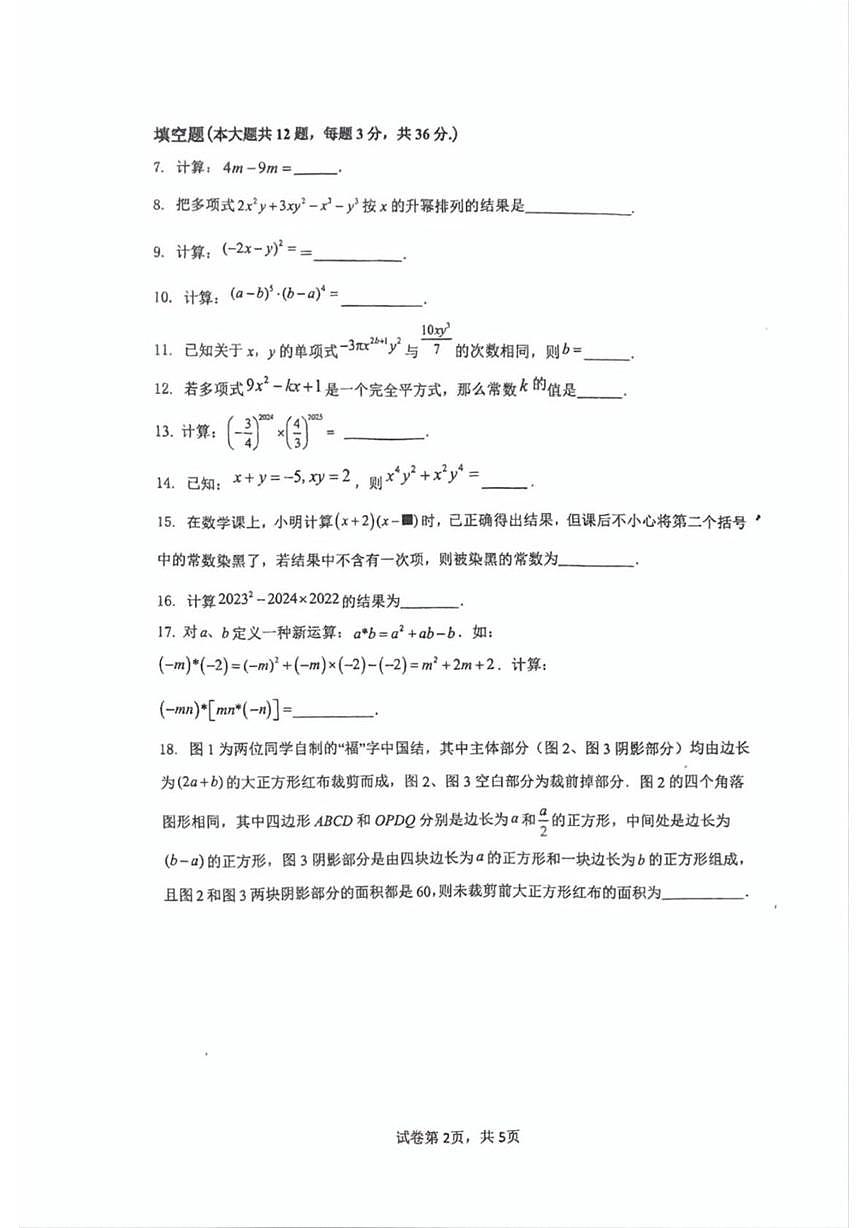 填空题(本大题共12题，每题3分，共36分.)
7. 计算：4m－9m＝_____.
8. 把多项式2x²y+3xy²－x³－y³按x的升幂排列的结果是_____________.
9. 计算：(－2x－y)²＝＝___________.
10. 计算：(a－b)⁵·(b－a)⁴＝__________.
11. 已知关于x，y的单项式－3πx²ᵇ⁺¹y²与10xy³/7的次数相同，则b＝_____.
12. 若多项式9x²－kx+1是一个完全平方式，那么常数k的值是_____.
13. 计算：(－3/4)²⁰²⁴×(4/3)²⁰²⁵＝__________.
14. 已知：x+y＝－5, xy＝2，则x⁴y²+x²y⁴＝_____.
15. 在数学课上，小明计算(x+2)(x－■)时，已正确得出结果，但课后不小心将第二个括号
中的常数染黑了，若结果中不含有一次项，则被染黑的常数为_________.
16. 计算2023²－2024×2022的结果为_______.
17. 对a、b定义一种新运算：a*b＝a²+ab－b．如：
(－m)*(－2)＝(－m)²+(－m)×(－2)－(－2)＝m²+2m+2．计算：
(－mn)*[mn*(－n)]＝_________.
18. 图1为两位同学自制的“福”字中国结，其中主体部分（图2、图3阴影部分）均由边长
为(2a+b)的大正方形红布裁剪而成，图2、图3空白部分为裁前掉部分．图2的四个角落
图形相同，其中四边形ABCD和OPDQ分别是边长为a和a/2的正方形，中间处是边长为
(b－a)的正方形，图3阴影部分是由四块边长为a的正方形和一块边长为b的正方形组成，
且图2和图3两块阴影部分的面积都是60,则未裁剪前大正方形红布的面积为_________.
试卷第2页，共5页